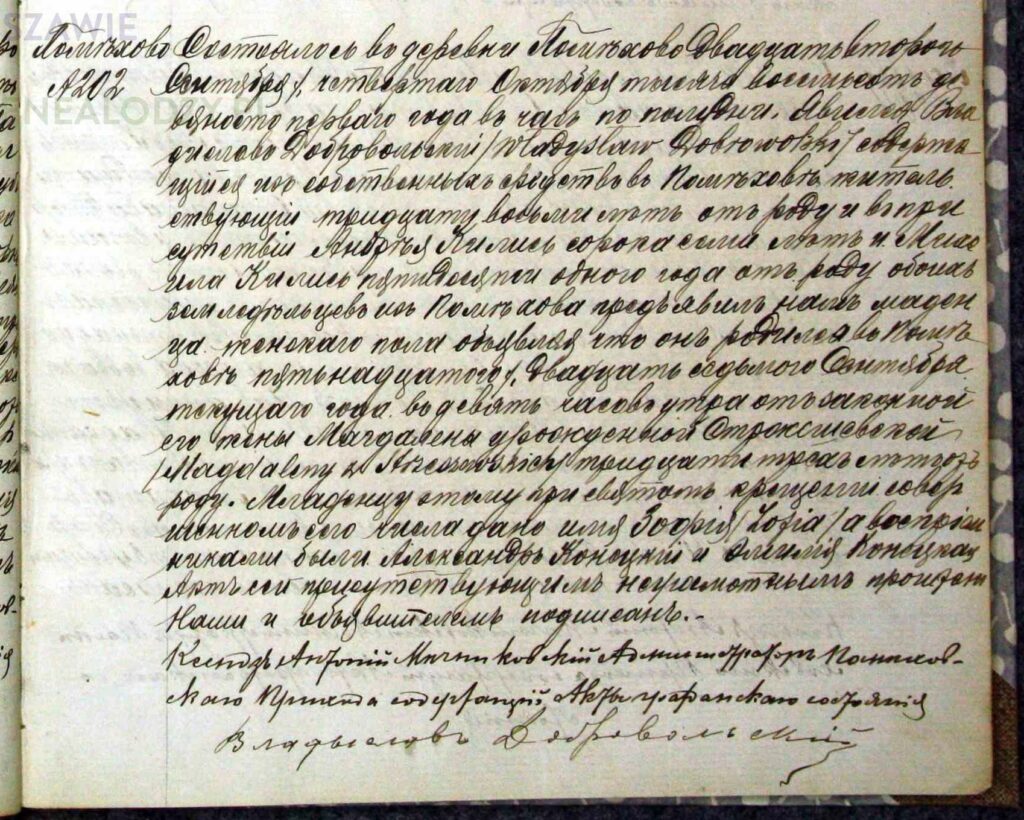 SZAWIE
NEALODZY.PL
Помѣхово Состоялось въ деревни Помѣхово Двадцать втораго
№ 202 Сентября /: четвертаго Октября тысяча восемьсотъ де
вяносто перваго года въ часъ по полудни. Явился Вла
диславъ Добровольскій /Władysław Dobrowolski/ содержа
щійся изъ собственныхъ средствъ въ Помѣховѣ житель
ствующій тридцати восьми лѣтъ отъ роду и въ при
сутствіи Андрея Кились сорока семи лѣтъ и Миха
ила Кились пятидесяти одного года отъ роду обоихъ
земледѣльцевъ изъ Помѣхова предъявилъ намъ маден
ца женскаго пола объявляя что онъ родился въ Помѣ
ховѣ пятьнадцатого /: Двадцать седьмого Сентября
текущаго года въ девять часовъ утра отъ законной
его жены Магдалены урожденной
/Magdaleny z тридцати трехъ лѣтъ отъ
роду. Младенцу этому при святомъ крещеніи совер
шенномъ сего числа дано имя Зофія /Zofia/ а воспріем
никами были Александръ Конецкій и Эмилія Конецкая
Актъ сей присутствующимъ неграмотнымъ прочтенъ
Нами и объявителемъ подписанъ.-
Ксендзъ Антоній Администраторъ Помехов-
скаго Прихода содержащій Акты гражданскаго состоянія
Владыславъ Добровольскій